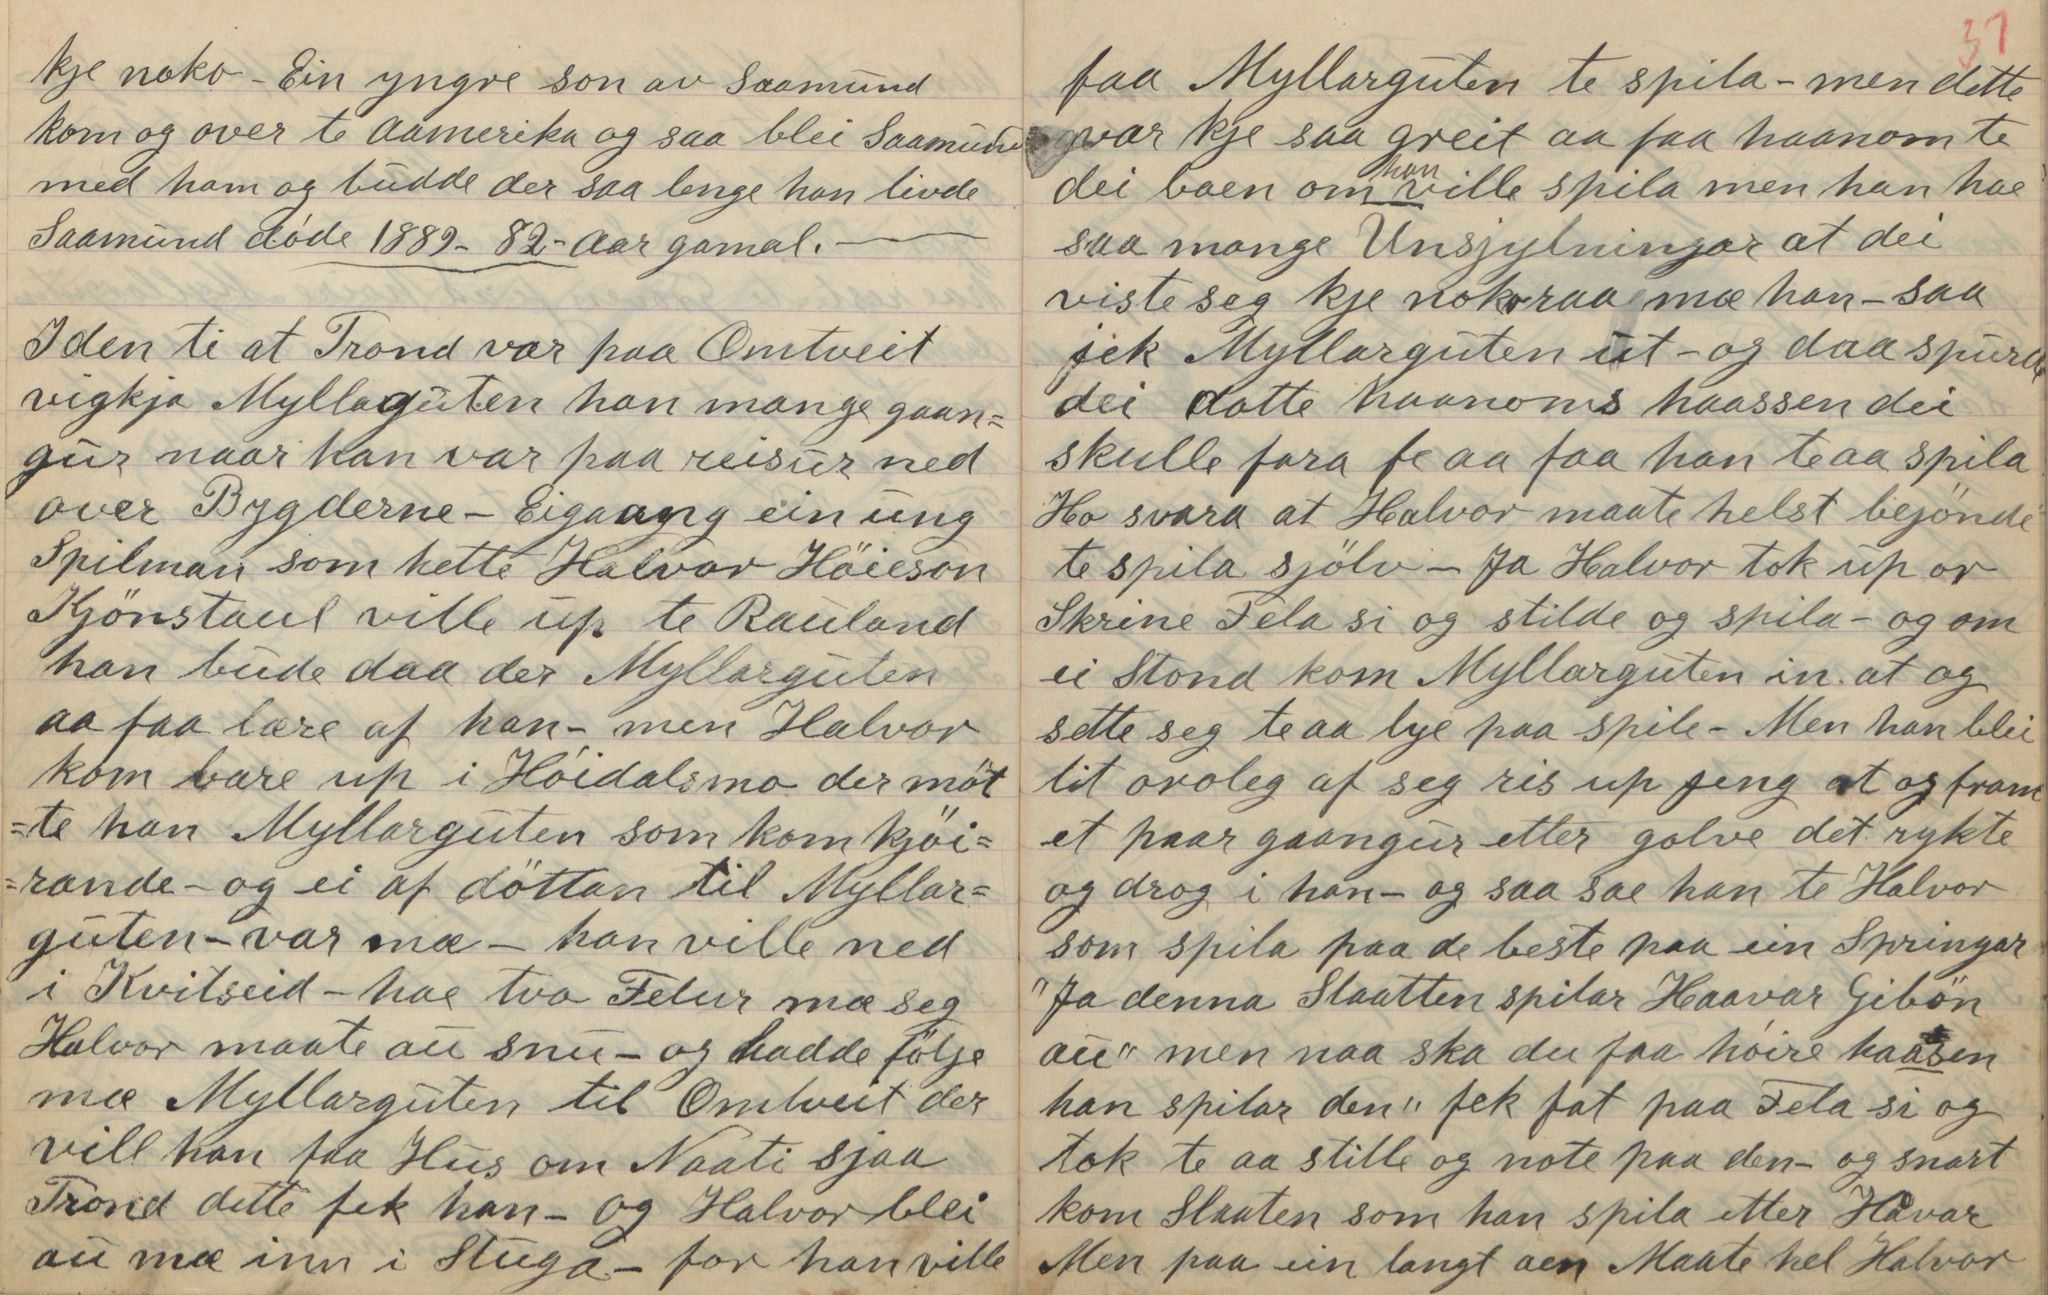 kje noko - Ein yngre son av Saamund
kom og over te Aamerika og saa blei Saamund
med ham og budde der saa lenge han livde
Saamund døde 1889 - 82 - Aar gamal. —
I den ti at Trond var paa Omtveit
vigkja Myllaguten han mange gaan=
gur naar han var paa reisur ned
over Bygderne - Eigaang ein ung
Spilman som hette Halvor Höieson
Kjönstaul ville up te Rauland
han bude daa der Myllarguten
aa faa lære af han - men Halvor
kom bare up i Höidalsmo der möt
=te han Myllarguten som kom kjöi=
=rande - og ei af döttan til Myllar=
guten - var mæ - han ville ned
i Kvitseid - hae tvo Felur mæ seg
Halvor maate au snu - og hadde följe
mæ Myllarguten til Omtveit der
vill han faa Hus om Naati sjaa
Trond dette fek han - og Halvor blei
au mæ inn i Stuga - for han ville
37
faa Myllarguten te spila - men dette
var kje saa greit aa faa haanom te
dei baen om han ville spila men han hae
saa mange Unsjylningar at dei
viste seg kje nokor raa mæ han - saa
jek Myllarguten ut - og daa spurde
dei dotte haanoms haassen dei
skulle fara fe aa faa han te aa spila
Ho svara at Halvor maate helst bejönde
te spila sjölv - Ja Halvor tok up or
Skrine Fela si og stilde og spila - og om
ei Stond kom Myllarguten in at og
sette seg te aa lye paa spile - Men han blei
lit oroleg af seg ris up jeng at og fram
et paar gaangur etter golve det rykte
og drog i han - og saa sae han te Halvor
som spila paa de beste paa ein Springar
"Ja denna Slaatten spilar Haavar Gibön
au" men naa ska du faa höire haassen
han spilar den" fek fat paa Fela si og
tok te aa stille og note paa den - og snart
kom Slaaten som han spila etter Havar
Men paa ein langt aen Maate hel Halvor